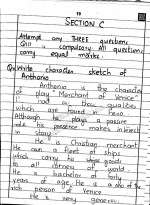 SECTION C
Attempt any THREE question,
Q11 compulsory. All question
carry equal marks.
Q. Write character sketch of
Anthonio
Anthonio the character
of play "Merchant of Venice"
had all those qualities
which are found in hero.
Although he plays a passive
role his presence makes interest
in story.
He is Christian merchant
He own a fleet of ships
which carry his goods
to all corners of world.
He is bachelor
years of age. He is a one of the
rich person of Venice.
He is very generous